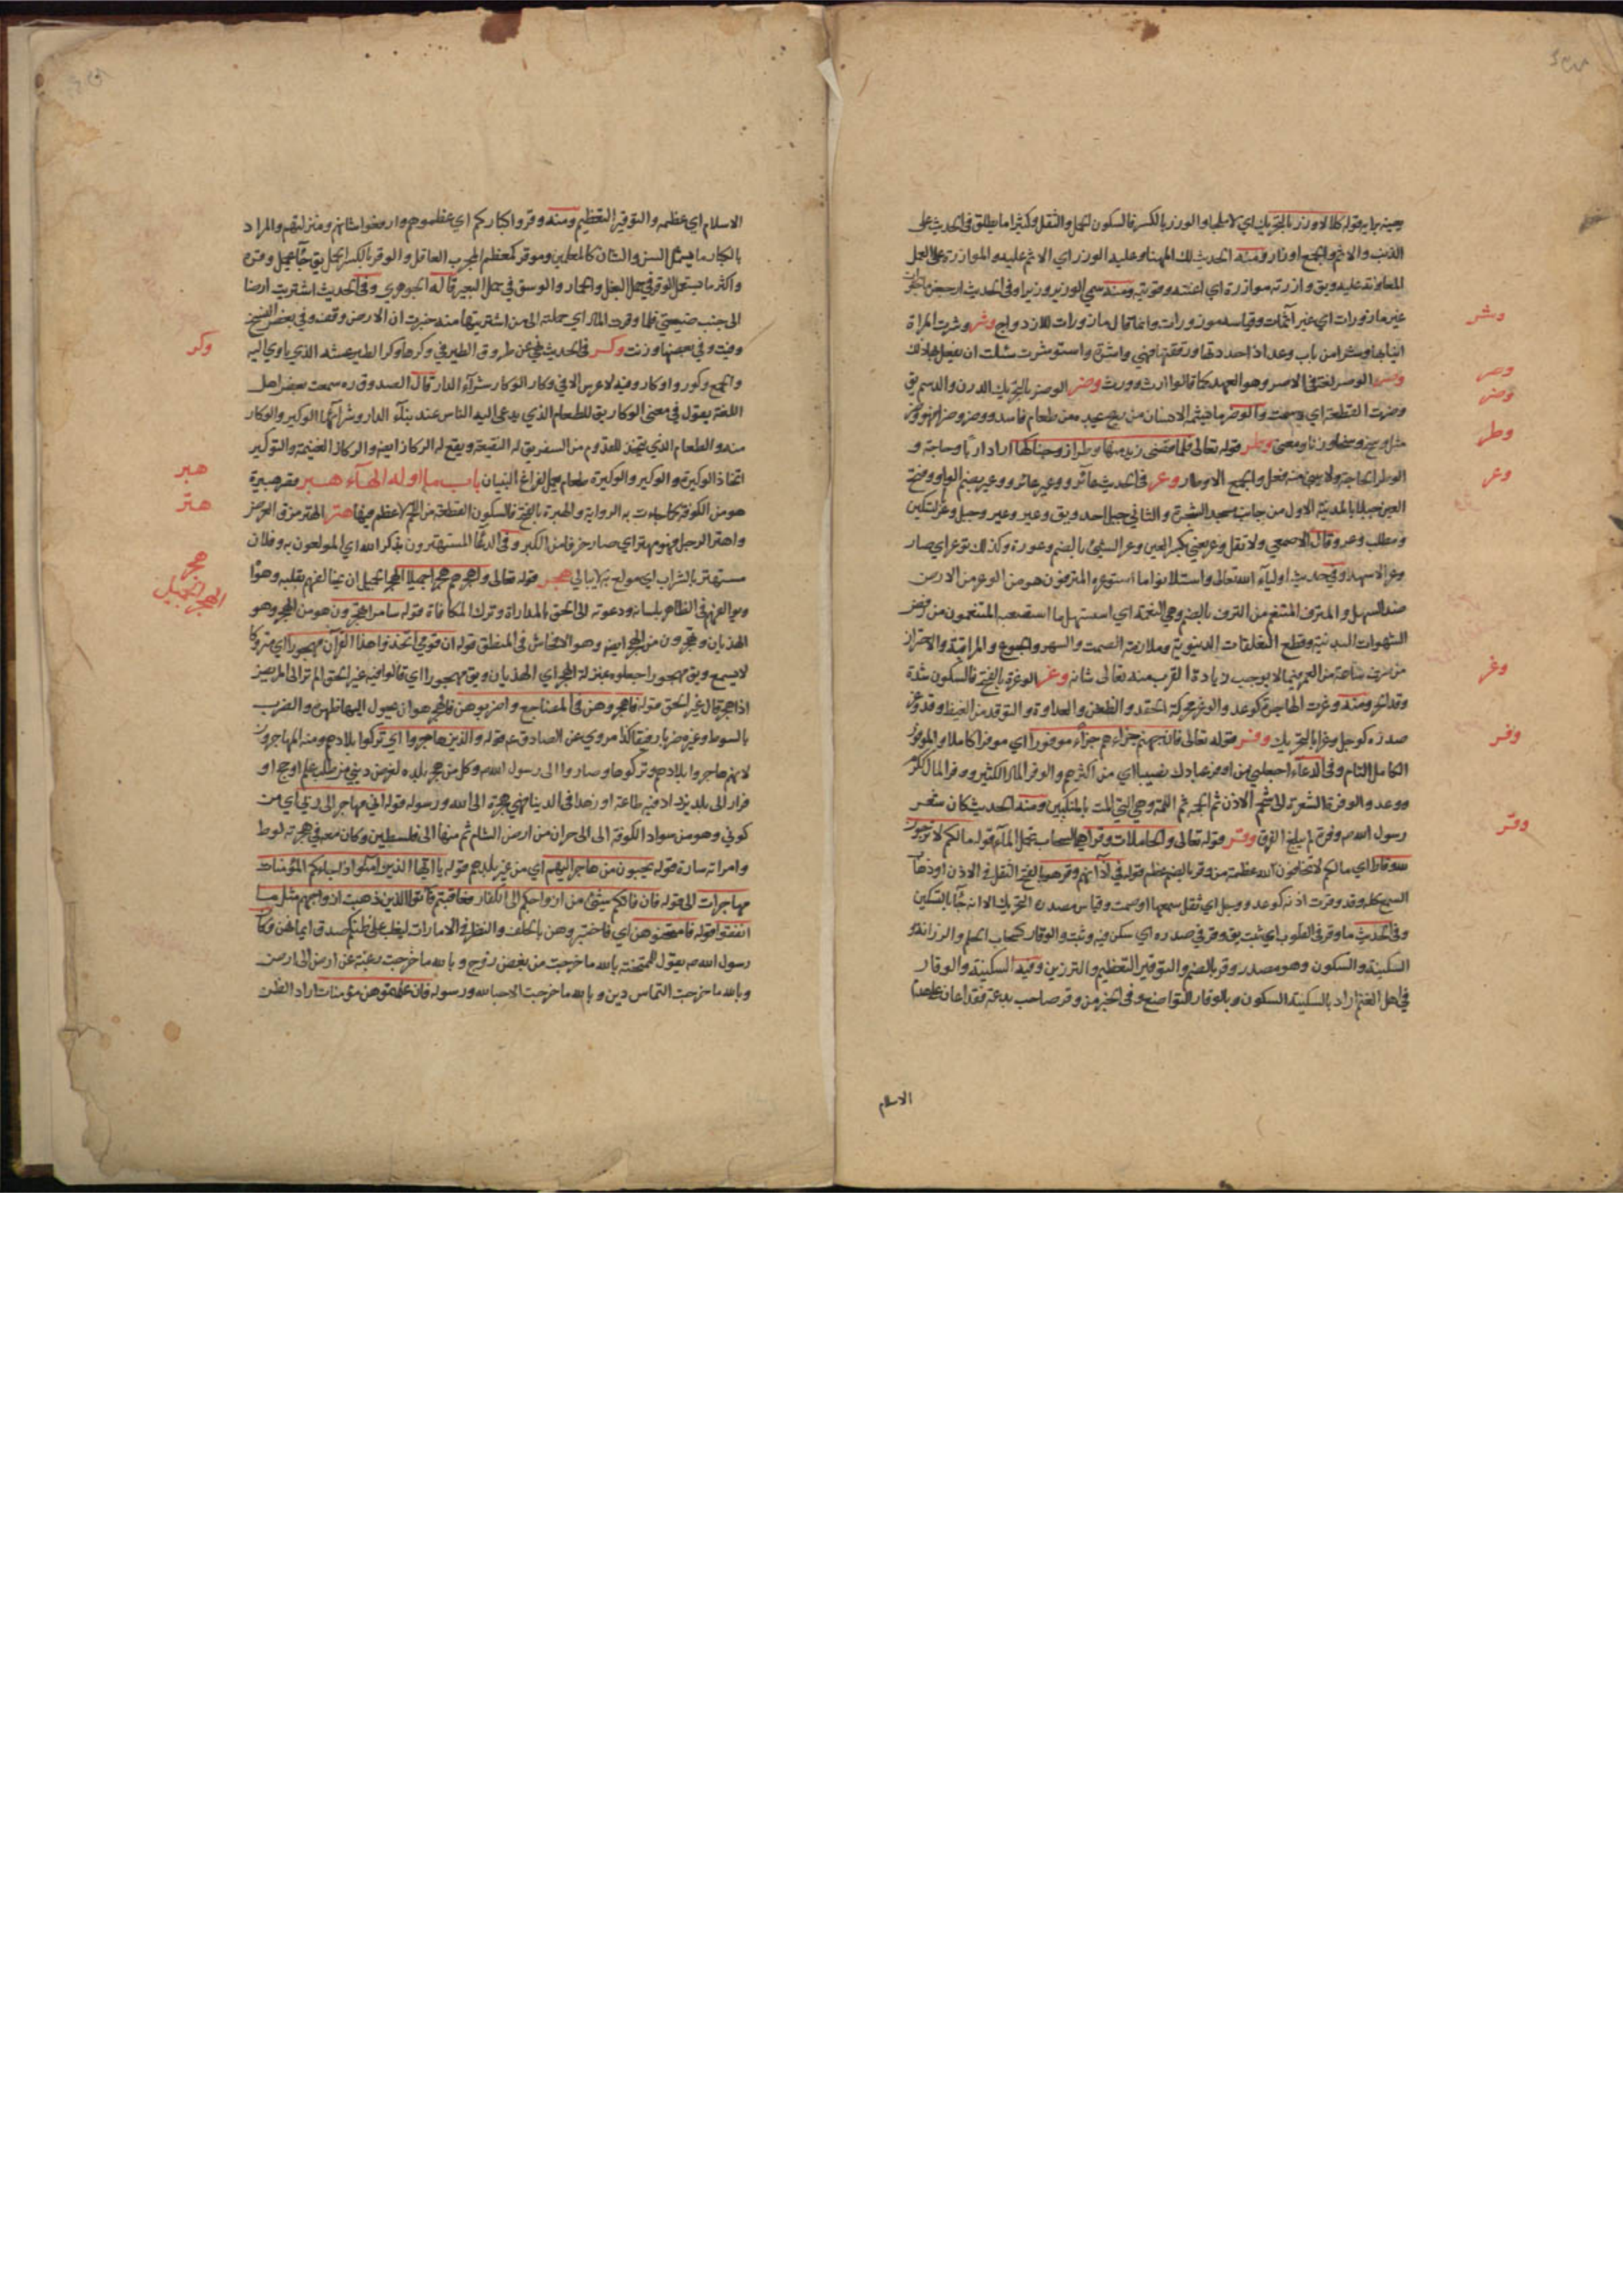 وشر
وصر
وضر
وطر
وعر
وغر
وفر
وقر
يعينه برايه قوله كلا لا وزر بالتحريك اي لا ملجا والوزر بالكسر فالسكون الحمل والثقل وكثيرا ما يطلق في الحديث على
الذنب والاثم والجمع اوزار ومنه الحديث لك المهنا وعليه الوزر اي الاثم عليه والموازرة على العمل
المعاونة عليه ويق وازرته موازرة اي اعنته وقويته ومنه سمي الوزير وزيرا وفي الحديث ارجعن ماجورات
غير مازورات اي غير آثمات وقياسه موزورات وانما قال مازورات للازدواج وشر وشرت المراة
انيابها وشرا من باب وعد اذا حددتها ورققتها فهي واشرة واستوشرت سئلت ان يفعل بها ذلك
وصر الوصر لغة في الاصر وهو العهد كما قالوا ارث وورث وضر الوضر بالتحريك الدرن والدسم يق
وضرت القصعة اي دسمت والوضر ما يشمه الانسان من ريح يجده من طعام فاسد ووضر وضرا فهو وضر
مثل وسخ وسخا وزنا ومعنى وطر قوله تعالى فلما قضى زيد منها وطرا زوجناكها اراد اربا وحاجة و
الوطر الحاجة ولا يبنى منه فعل والجمع الاوطار وعر في الحديث عائر ووعير عائر ووعير بضم الواو وفتح
العين جبلا بالمدينة الاول من جانب مسجد الشجرة والثاني جبل احد ويق وعير وعير وجبل وعر بالتسكين
ومطلب وعر وقال الاصمعي ولا تقل وعر يعني بكسر العين وعر الشيئ بالضم وعورة وكذلك توعر اي صار
وعرا لا سهلا وفي حديث اولياء الله تعالى واستلانوا ما استوعره المترفون هو من الوعر من الارض
ضد السهل والمترف المتنعم من الترف بالضم وهي النعمة اي استسهلوا ما استصعبه المتنعمون من رفض
الشهوات البدنية وقطع التعلقات الدنيوية وملازمة الصمت والسهر والجوع والمراقبة والاحتراز
من صرف ساعة من العمر فيما لا يوجب زيادة القرب منه تعالى شانه وغر الوغرة بالفتح فالسكون شدة
توقد الحر ومنه وغرت الهاجرة كوعد والوغر محركة الحقد والظغن والعداوة والتوقد من الغيظ وقد وغر
صدره كوجل وغرا بالتحريك وفر قوله تعالى فان جهنم جزاءهم جزاء موفورا اي موفرا كاملا والموفور
الكامل التام وفي الدعآء اجعلني من اوفر عبادك نصيبا اي من اكثرهم والوفر المال الكثير ووفر المال ككرم
ووعد والوفرة الشعرة الى شحمة الاذن ثم الجمة ثم اللمة وهي التي المت بالمنكبين ومنه الحديث كان شعر
رسول الله ص وفرة لم يبلغ الفرق وقر قوله تعالى والحاملات وقرا هي السحاب تحمل المآء قوله مالكم لا ترجون
لله وقارا اي مالكم لا تخافون لله عظمة من وقر بالضم عظم قوله في آذانهم وقر هو بالفتح الثقل في الاذن او ذهاب
السمع كله وقد وقرت اذنه كوعد ووجل اي ثقل سمعها او صمت وقياس مصدره التحريك الا انه جآء بالتسكين
وفي الحديث ما وقر في القلوب اي ثبت يق وقر في صدره اي سكن فيه وثبت والوقار كسحاب الحلم والرزانة و
السكينة والسكون وهو مصدر وقر بالضم والتوقير التعظيم والترزين وفيه السكينة والوقار
في اهل الغنم اراد بالسكينة السكون وبالوقار التواضع وفي الخبر من وقر صاحب بدعة فقد اعان على هدم
الاسلام
وكر
هبر
هتر
هجر
الهجر الجميل
الاسلام اي عظمه والتوقير التعظيم ومنه وقروا كباركم اي عظموهم وارفعوا شانهم ومنزلتهم والمراد
بالكبار ما يشمل السن والشان كالمعلمين وموقر كمعظم المجرب العاقل والوقر بالكسر الحمل يق جآء يحمل وقره
واكثر ما يستعمل الوقر في حمل البغل والحمار والوسق في حمل البعير قاله الجوهري وفي الحديث اشتريت ارضا
الى جنب ضيعتي فلما وقرت المال اي حملته الى من اشتريتها منه خبرت ان الارض وقف وفي بعض النسخ
وفيت وفي بعضها وزنت وكر في الحديث نهي عن طروق الطير في وكرها وكر الطير عشه الذي ياوي اليه
والجمع وكور واوكار وفيه لا عرس الا في وكار الوكار شرآء الدار قال الصدوق ره سمعت بعض اهل
اللغة يقول في معنى الوكار يق للطعام الذي يدعى اليه الناس عند بنآء الدار وشرآئها الوكير والوكار
منه والطعام الذي يتخذ للقدوم من السفر يق له النقيعة ويقع له الركاز ايضا والركاز الغنيمة والتوكير
اتخاذ الوكيرة والوكير والوكيرة طعام يعمل لفراغ البنيان باب ما اوله الهآء هبر قصر هبيرة
هو من الكوفة كما جاءت به الرواية والهبرة بالفتح فالسكون القطعة من اللحم لا عظم فيها هتر الهتر مزق العرض
واهتر الرجل فهو مهتر اي صار خرفا من الكبر وفي الدعآء المستهترون بذكر الله اي المولعون به وفلان
مستهتر بالشراب اي مولع به لا يبالي هجر قوله تعالى واهجرهم هجرا جميلا الهجر الجميل ان يخالفهم بقلبه وهواه
ويوالفهم في الظاهر بلسانه ودعوته الى الحق بالمداراة وترك المكافاة قوله سامرا تهجرون هو من الهجر وهو
الهذيان وتهجرون من الهجر ايضا وهو الافحاش في المنطق قوله ان قومي اتخذوا هذا القرآن مهجورا اي متروكا
لا يسمع ويق مهجورا جعلوه بمنزلة الهجر اي الهذيان ويق مهجورا اي قالوا فيه غير الحق الم تر الى المريض
اذا هجر قال غير الحق قوله فاهجروهن في المضاجع واضربوهن فالهجر هو ان يحول اليها ظهره والضرب
بالسوط وغيره ضربا رفيقا كذا مروي عن الصادق ع قوله والذين هاجروا اي تركوا بلادهم ومنه المهاجرون
لانهم هاجروا بلادهم وتركوها وصاروا الى رسول الله ص وكل من هجر بلده لغرض ديني من طلب علم او حج او
فرار الى بلد يزداد فيه طاعة او زهدا في الدنيا فهي هجرة الى الله ورسوله قوله اني مهاجر الى ربي اي من
كوثي وهو من سواد الكوفة الى حران من ارض الشام ثم منها الى فلسطين وكان معه في هجرته لوط
وامراته سارة قوله يحبون من هاجر اليهم اي من غير بلدهم قوله يا ايها الذين آمنوا اذا جاءكم المؤمنات
مهاجرات الى قوله فان فاتكم شيئ من ازواجكم الى الكفار فعاقبتم فآتوا الذين ذهبت ازواجهم مثل ما
انفقوا قوله فامتحنوهن اي فاختبروهن بالحلف والنظر في الامارات ليغلب على ظنكم صدق ايمانهن وكان
رسول الله ص يقول للممتحنة بالله ما خرجت من بغض زوج وبالله ما خرجت رغبة عن ارض الى ارض
وبالله ما خرجت التماس دين وبالله ما خرجت الا حبا لله ورسوله فان علمتموهن مؤمنات اراد الظن